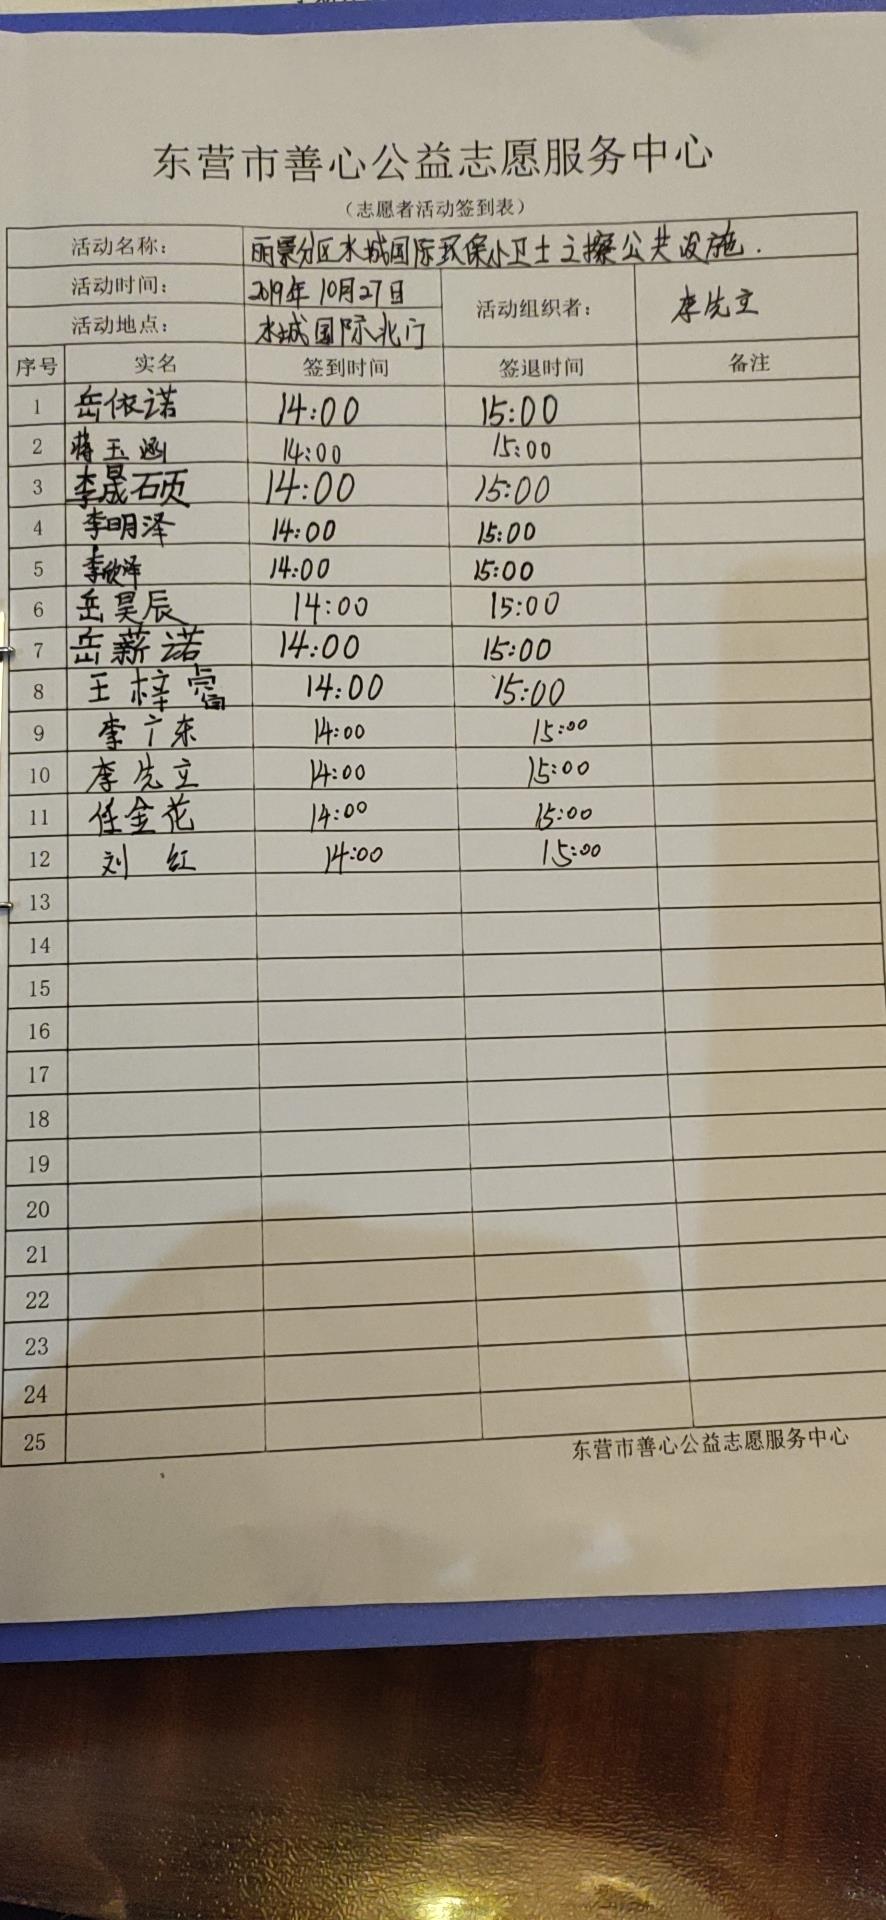 东营市善心公益志愿服务中心
（志愿者活动签到表）
活动名称： 丽景分区水城国际环保小卫士之擦公共设施.
活动时间： 2019年10月27日 活动组织者： 李先立
活动地点： 水城国际北门
序号 实名 签到时间 签退时间 备注
1 岳依诺 14:00 15:00
2 蒋玉涵 14:00 15:00
3 李晟硕 14:00 15:00
4 李明泽 14:00 15:00
5 李欣泽 14:00 15:00
6 岳昊辰 14:00 15:00
7 岳薪诺 14:00 15:00
8 王梓 14:00 15:00
9 李广东 14:00 15:00
10 李先立 14:00 15:00
11 任金花 14:00 15:00
12 刘红 14:00 15:00
13
14
15
16
17
18
19
20
21
22
23
24
25
东营市善心公益志愿服务中心